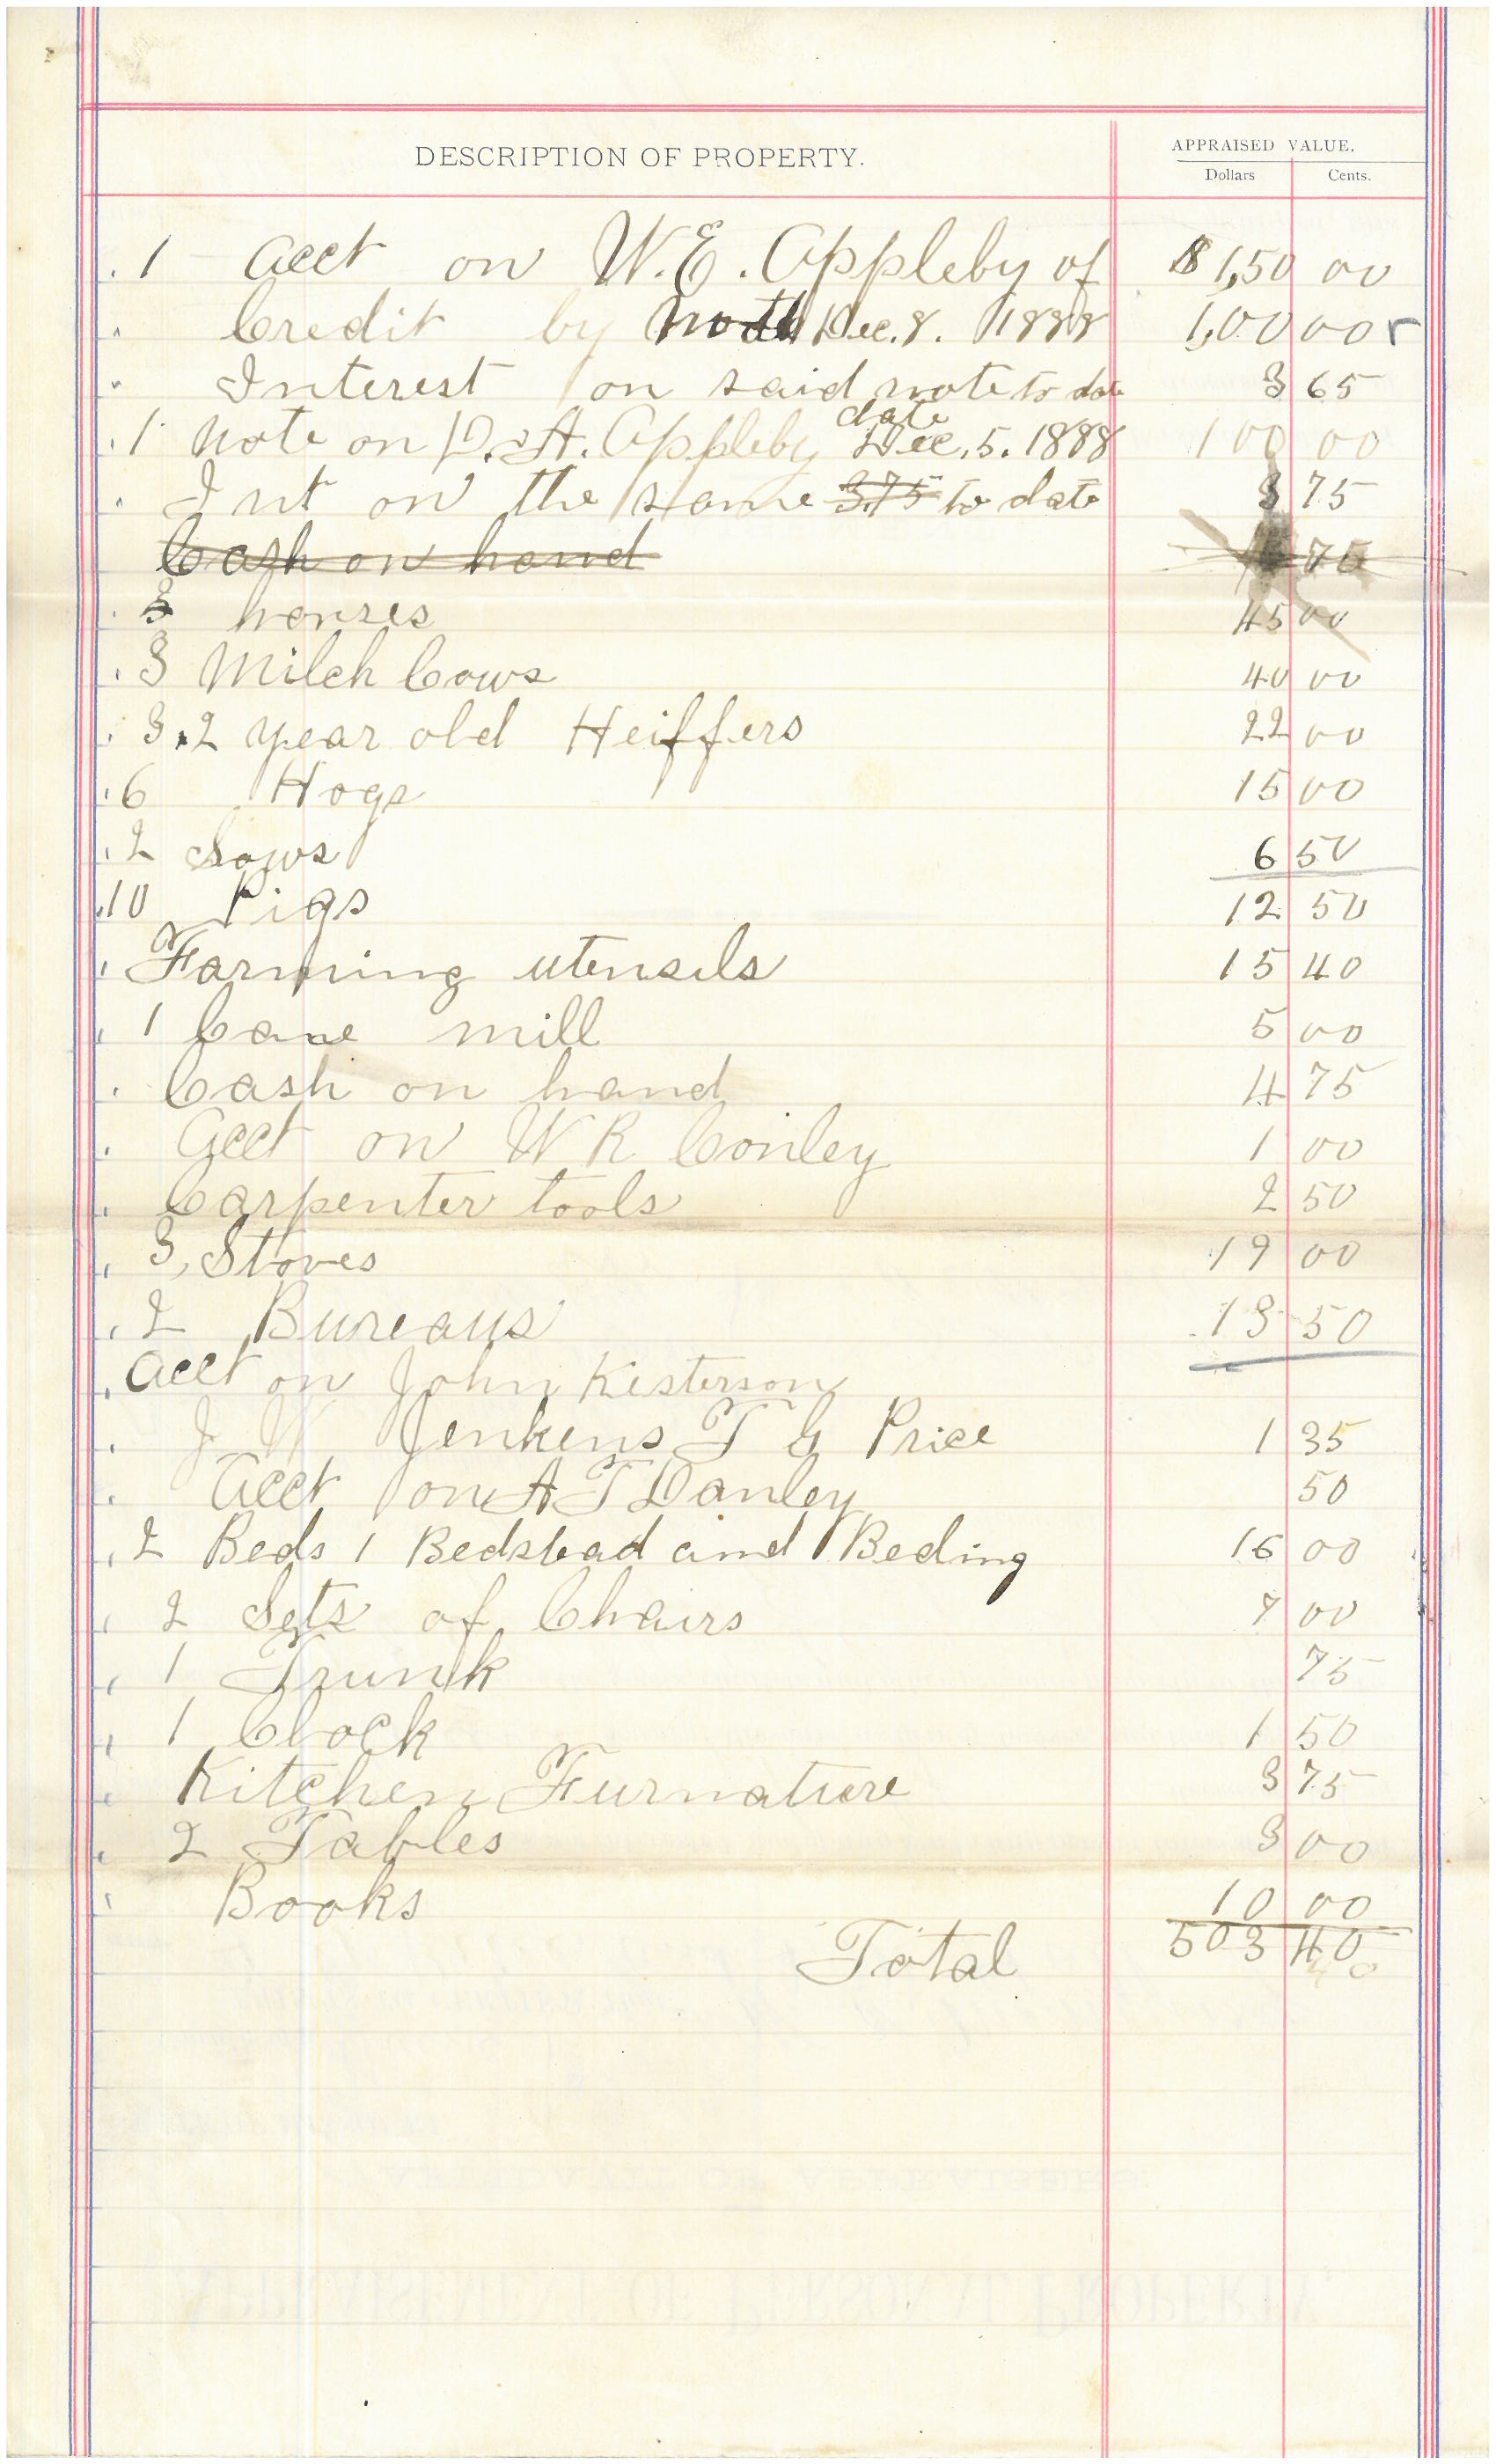 DESCRIPTION OF PROPERTY.
APPRAISED VALUE.
Dollars Cents.
1 Acct on W.E. Appleby of $1,50 00
" Credit by Note Dec. 8. 1888 1,00 00
" Interest on said note to date 3 65
date
1 Note on D. A. Appleby Dec. 5. 1888 100 00
" Int on the same 375 to date 3 75
Cash on hand 75
3 horses 45 00
" 3 Milch Cows 40 00
" 3. 2 year old Heiffers 22 00
" 6 Hogs 15 00
" 2 Sows 6 50
" 10 Pigs 12 50
" Farming utensils 15 40
" 1 Cane mill 5 00
" Cash on hand 4 75
" Acct on W R Conley 1 00
" Carpenter tools 2 50
" 3, Stoves 19 00
" 2 Bureaus 13 50
" Acct on John Kesterson
" J W Jenkens T G Price 1 35
" Acct on A T Danley 50
" 2 Beds 1 Bedstead and Beding 16 00
" 2 Sets of Chairs 7 00
" 1 Trunk 75
" 1 Clock 1 50
" Kitchen Furnature 3 75
" 2 Tables 3 00
" Books 10 00
Total 503 40